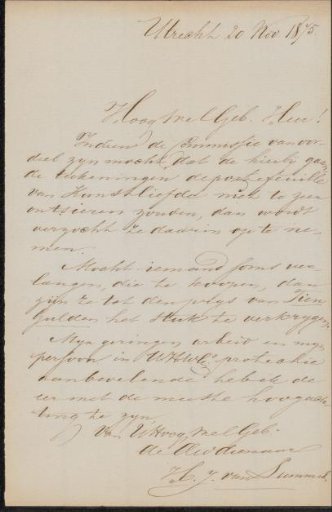 Utrecht 20 Nov 1875.
HoogWelGeb. Heer!
Indien de Commissie van oor-
deel zijn mocht, dat de hierbij gaan-
de teekeningen de portefeuille
van Kunstliefde niet te zeer
ontsieren zouden, dan wordt
verzocht ze daarin op te ne-
men.
Mocht iemand soms ver-
langen, die te koopen, dan
zijn ze tot den prijs van Tien
gulden het stuk te verkrijgen
Mijn geringen arbeid en mijn
persoon in UHWG protectie
aanbevelende heb ik de
eer met de meeste hoogach-
ting te zijn
Van UHoogWelGeb.
de Dw Dienaar
van Lummel